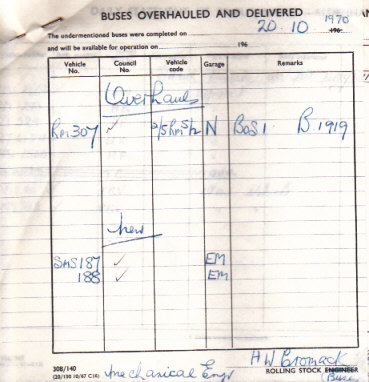 BUSES OVERHAULED AND DELIVERED
The undermentioned buses were completed on 20.10 1970 196
and will be available for operation on 196
Vehicle No. Council No. Vehicle code Garage Remarks
Overhauls
RM307 ✓ 2/5RM5/2 N BOS 1. B 1919
New
SMS187 ✓ EM
188 ✓ EM
H W Bromack
30B/140 ROLLING STOCK ENGINEER
(20/150 10/67 C10) Mechanical Engr (Buses